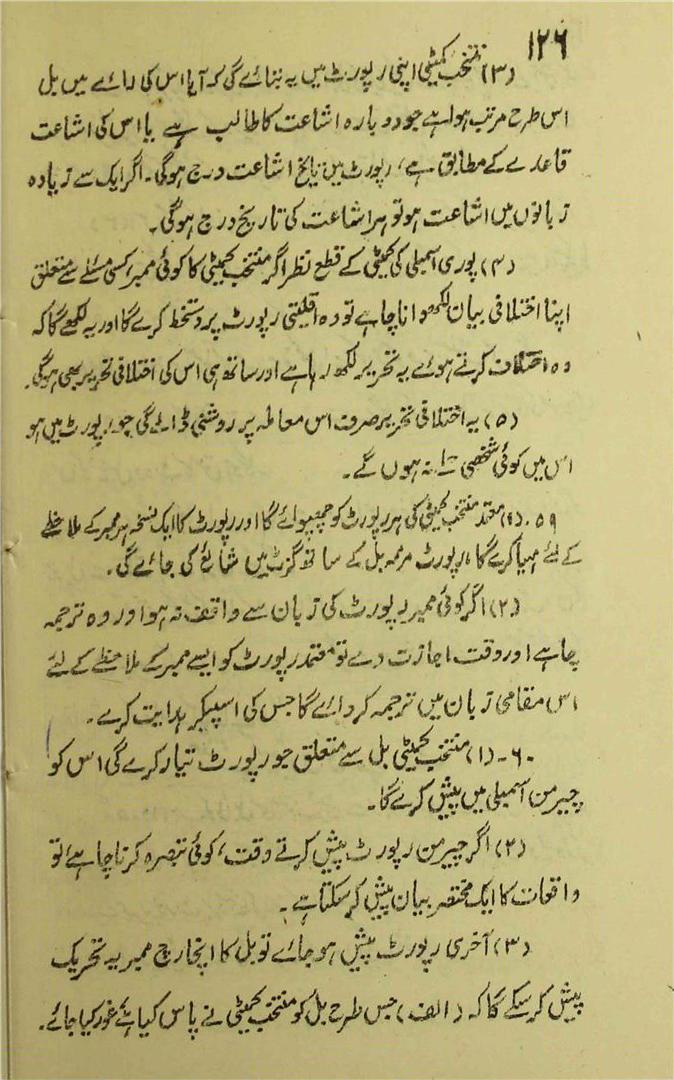 ۱۲۶
(۳) منتخب کمیٹی اپنی رپورٹ میں یہ بتائے گی کہ آیا اس کی رائے میں بل
اس طرح مرتب ہوا ہے جو دوبارہ اشاعت کا طالب ہے یا اس کی اشاعت
قاعدے کے مطابق ہے، رپورٹ میں تاریخ اشاعت درج ہوگی۔ اگر ایک سے زیادہ
زبانوں میں اشاعت ہو تو ہر اشاعت کی تاریخ درج ہوگی۔
(۴) پوری اسمبلی کی کمیٹی کے قطع نظر اگر منتخب کمیٹی کا کوئی ممبر، کسی مسئلے سے متعلق
اپنا اختلافی بیان لکھوانا چاہے تو وہ اقلیتی رپورٹ پر دستخط کرے گا اور یہ لکھے گا کہ
وہ اختلاف کرتے ہوئے یہ تحریر لکھ رہا ہے اور ساتھ ہی اس کی اختلافی تحریر بھی ہوگی۔
(۵) یہ اختلافی تحریر صرف اس معاملہ پر روشنی ڈالے گی جو رپورٹ میں ہو
اس میں کوئی شخصی نہ ہوں گے۔
۵۹۔ (۱) معتمد منتخب کمیٹی کی ہر رپورٹ کو چھپوائے گا اور رپورٹ کا ایک نسخہ ہر ممبر کے ملاحظے
کے لئے مہیا کرے گا، رپورٹ مرممہ بل کے ساتھ گزٹ میں شائع کی جائے گی۔
(۲) اگر کوئی ممبر رپورٹ کی زبان سے واقف نہ ہو اور وہ ترجمہ
چاہے اور وقت اجازت دے تو معتمد رپورٹ کو ایسے ممبر کے ملاحظے کے لئے
اس مقامی زبان میں ترجمہ کروائے گا جس کی اسپیکر ہدایت کرے۔
۶۰۔ (۱) منتخب کمیٹی بل سے متعلق جو رپورٹ تیار کرے گی اس کو
چیرمن اسمبلی میں پیش کرے گا۔
(۲) اگر چیرمن رپورٹ پیش کرتے وقت، کوئی تبصرہ کرنا چاہے تو
واقعات کا ایک مختصر بیان پیش کر سکتا ہے۔
(۳) آخری رپورٹ پیش ہو جائے تو بل کا انچارج ممبر یہ تحریک
پیش کر سکے گا کہ (الف) جس طرح بل کو منتخب کمیٹی نے پاس کیا ہے غور کیا جائے۔